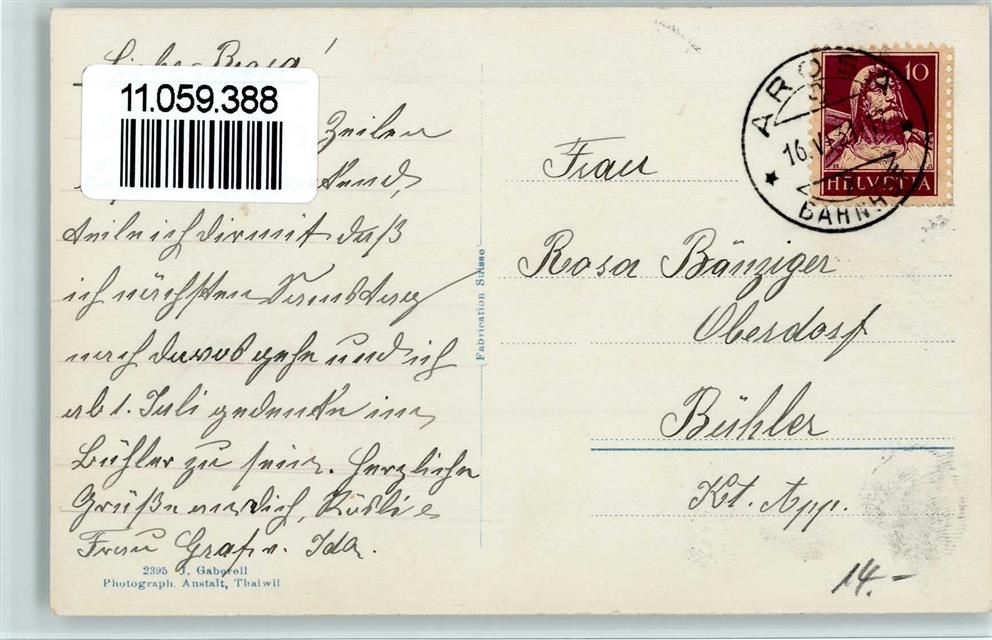 Liebe Rosa!
11.059.388
Zeilen
teile ich dir mit daß
ich nächsten Samstag
nach Davos gehe und ich
ab 1. Juli gedenke im
Bühler zu sein. Herzliche
Grüße an dich, Rösli &
Frau Graf v. Ida.
2395 J. Gaberell
Photograph. Anstalt, Thalwil
Fabrication Suisse
AROSA
16.VI.
BAHNHOF
10
HELVETIA
Frau
Rosa Bänziger
Oberdorf
Bühler
Kt. App.
14.-